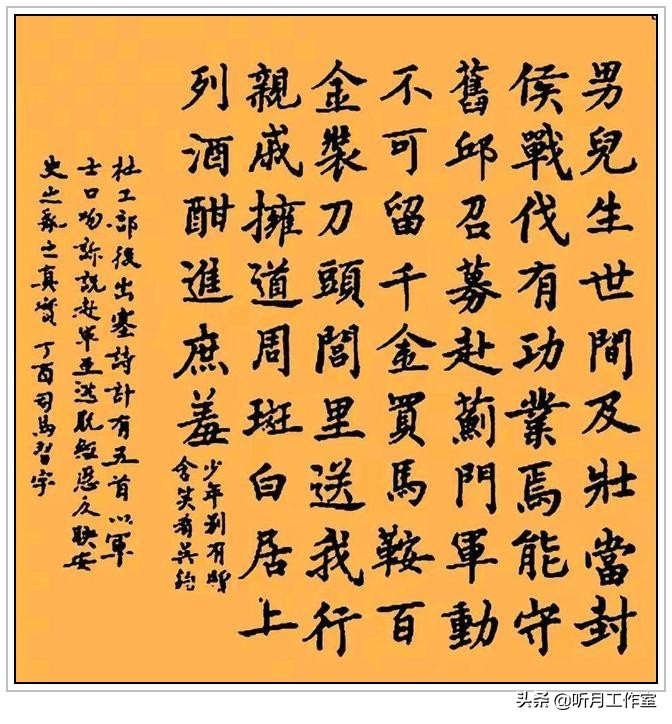 男兒生世間及壯當封
侯戰伐有功業焉能守
舊邱召募赴薊門軍動
不可留千金買馬鞍百
金裝刀頭閭里送我行
親戚擁道周斑白居上
列酒酣進庶羞
少年別有贈
含笑看吳鉤
杜工部後出塞詩計有五首以軍
士口吻訴說赴軍至逃脫經歷反映安
史之亂之真實 丁酉司馬習字
头条 @听月工作室